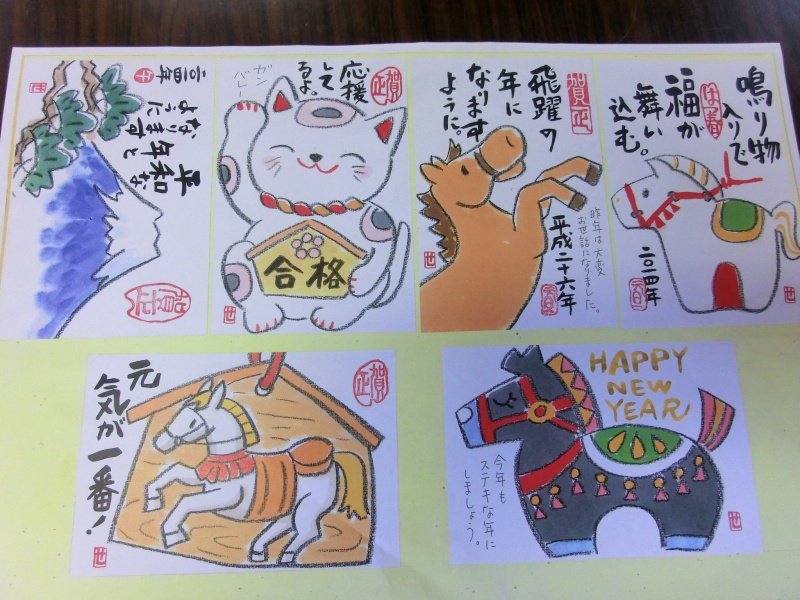 平和な
年と
なります
ように
二〇一四年
午
応援
して
るよ。
ガン
バレー
賀正
合格
賀正
飛躍の
年に
なります
ように。
平成二十六年
昨年は大変
お世話になりました。
鳴り物
入りで
福が
舞い
込む。
二〇一四年
賀正
元
気が一番！
HAPPY
NEW
YEAR
今年も
ステキな年に
しましょう。